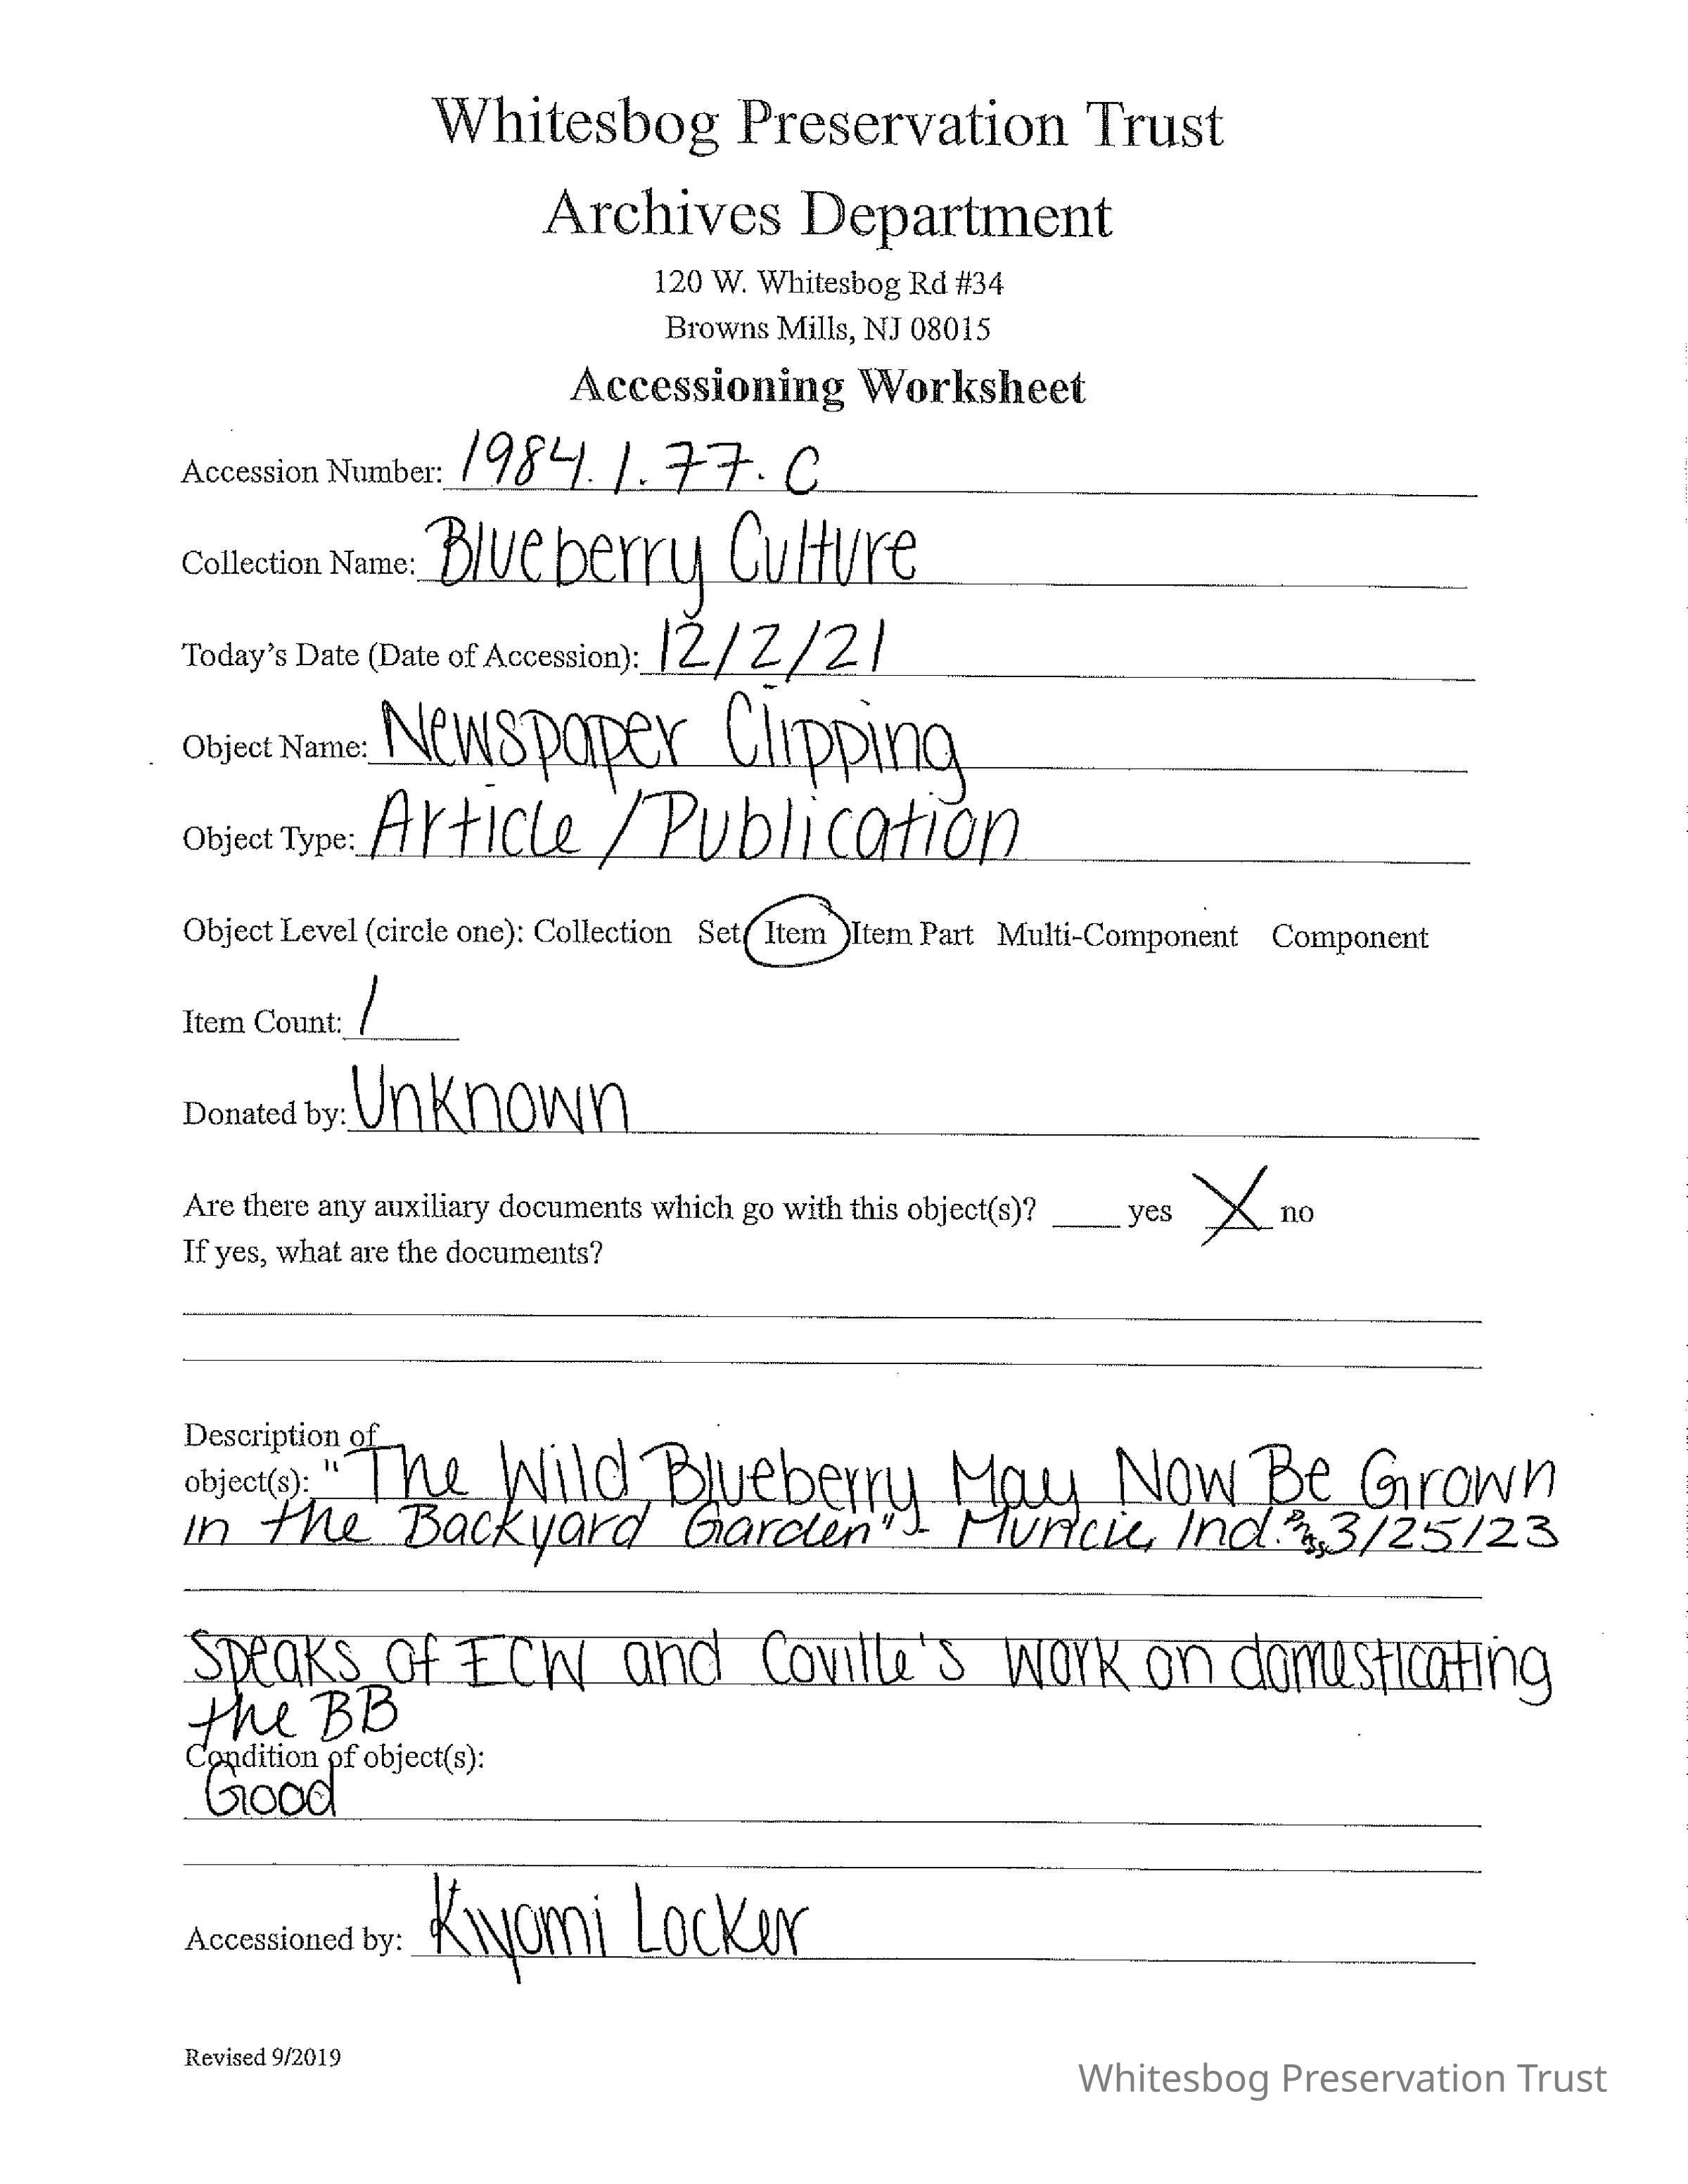 Whitesbog Preservation Trust
Archives Department
120 W. Whitesbog Rd #34
Browns Mills, NJ 08015
Accessioning Worksheet
Accession Number: 1984.1.77.C
Collection Name: Blueberry Culture
Today's Date (Date of Accession): 12/2/21
Object Name: Newspaper Clipping
Object Type: Article/Publication
Object Level (circle one): Collection Set Item Item Part Multi-Component Component
Item Count: 1
Donated by: Unknown
Are there any auxiliary documents which go with this object(s)? ____ yes X no
If yes, what are the documents?
Description of
object(s): "The Wild Blueberry May Now Be Grown
in the Backyard Garden" - Muncie, Ind. 3/25/23
Speaks of ECW and Coville's work on domesticating
the BB
Condition of object(s):
Good
Accessioned by: Kiyomi Locker
Revised 9/2019
Whitesbog Preservation Trust